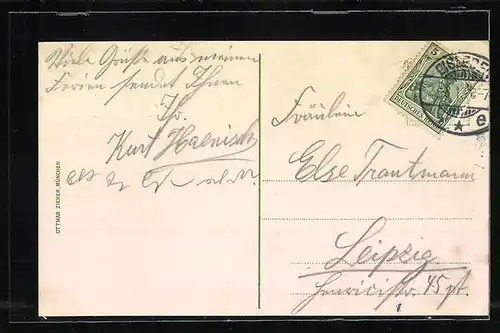 Viele Grüße aus meinen
Ferien sendet Ihnen
Ihr
Kurt Haenisch
OTTMAR ZIEHER, MÜNCHEN
5
DEUTSCHES REICH
* e
Fräulein
Else Trautmann
Leipzig
Henricistr. 45 pt.